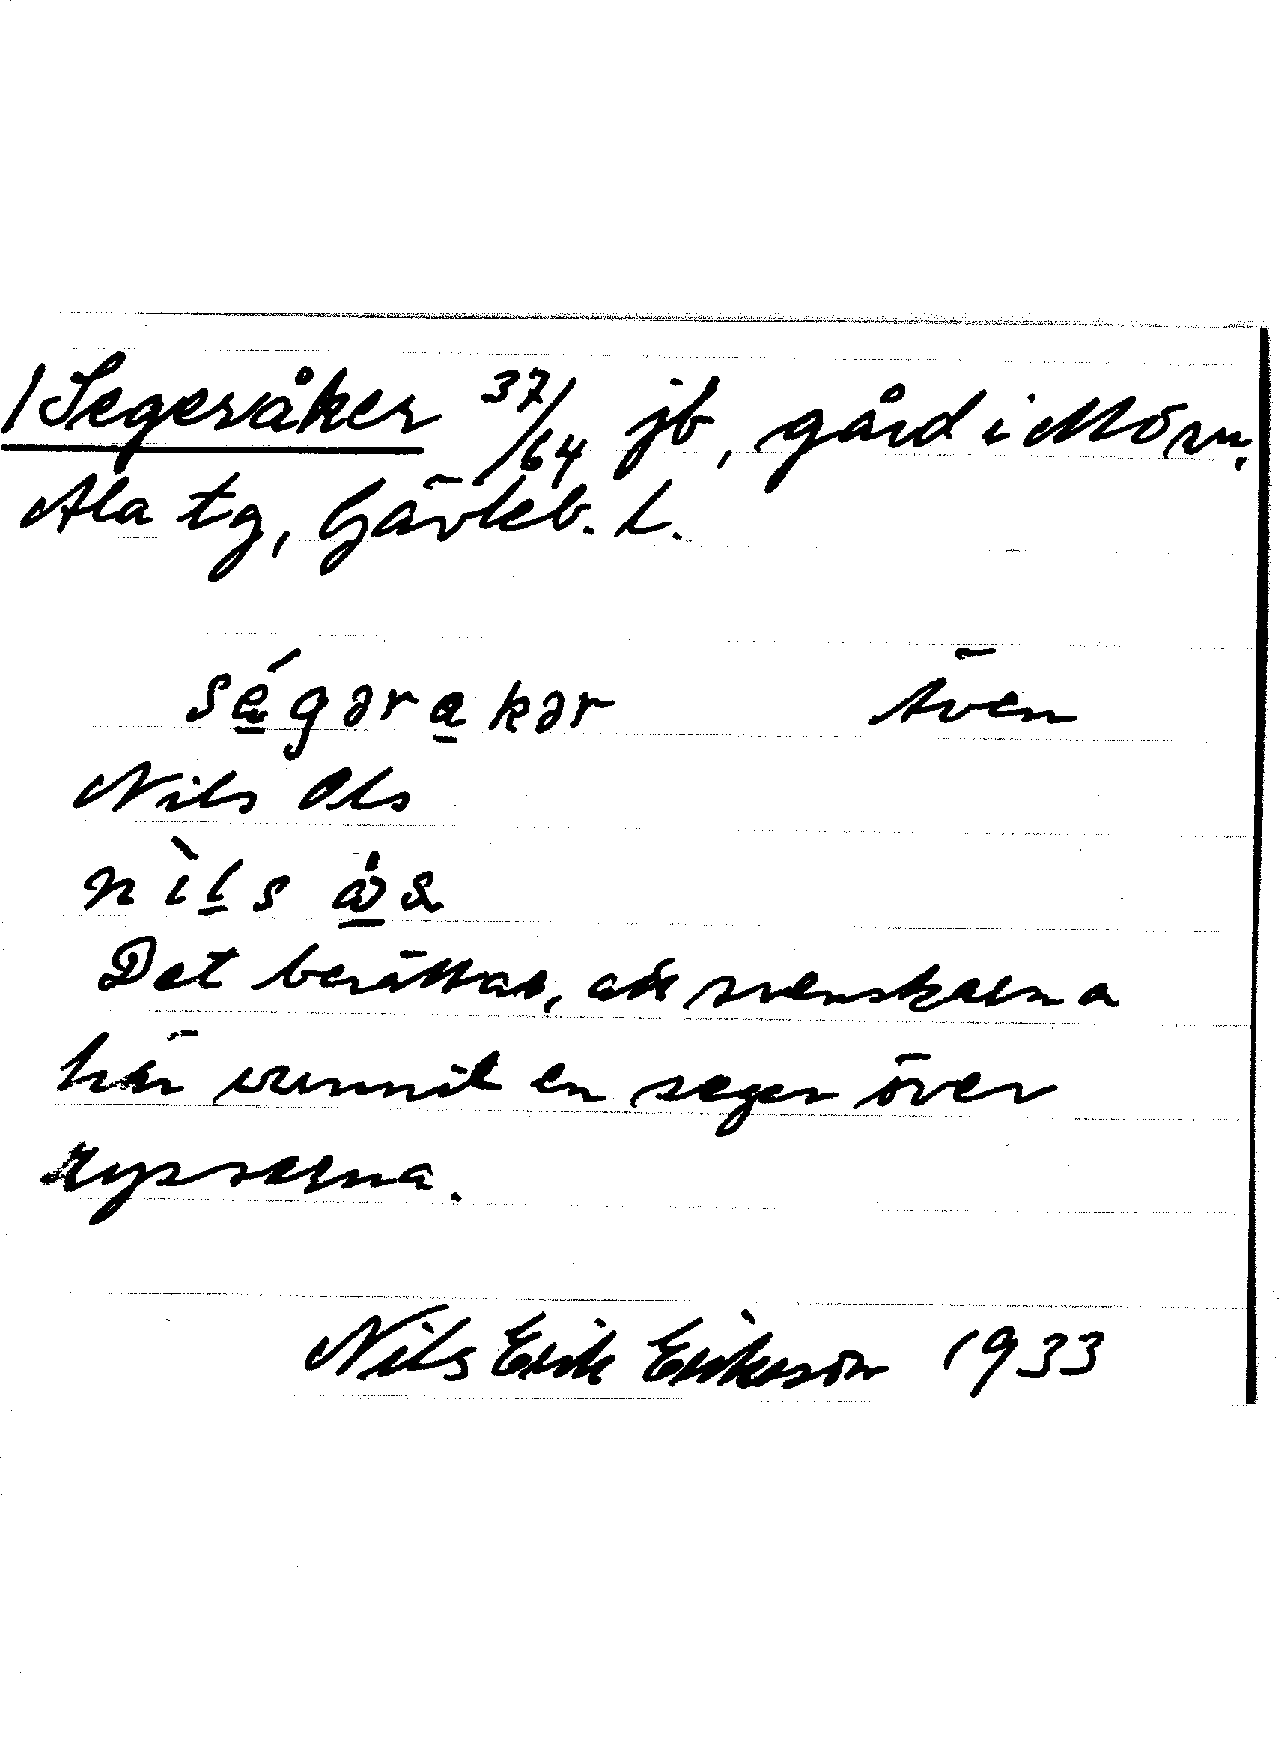 / Segeråker 37/64 jb, gård i Mörn,
Ala tg, Gävleb. L.
ségərakər Även
Nils Ols
nìls
Det berättas, att svenskarna
här vunnit en seger över
ryssarna.
Nils Erik Erikson 1933